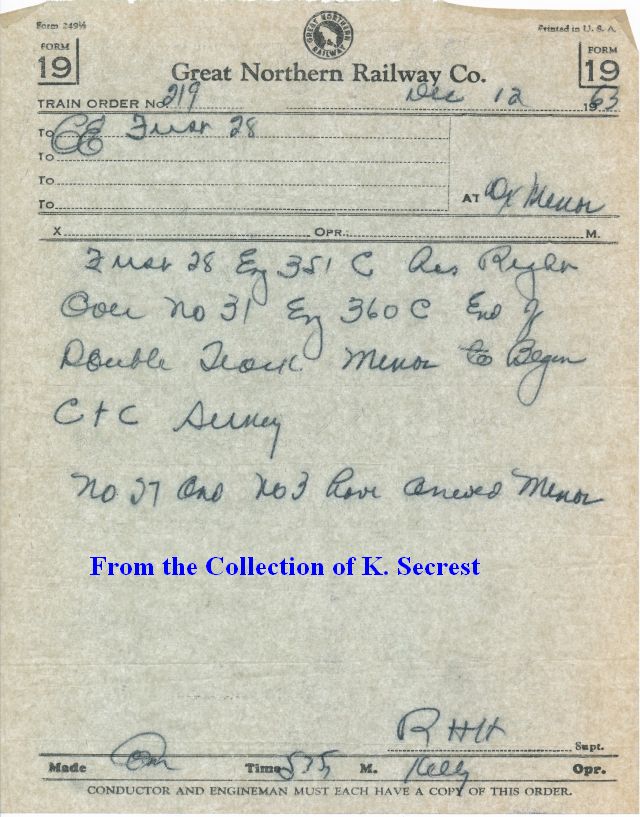 Form 249½
Printed in U. S. A.
FORM 19
GREAT NORTHERN RAILWAY
FORM 19
Great Northern Railway Co.
TRAIN ORDER No. 219 Dec 12 1963
To CE First 28
To
To
To
AT Dx Menor
X OPR.: M.
First 28 Eng 351 C Has Right
Over No 31 Eng 360 C End of
Double Track Menor to Begin
C T C Surrey
No 27 And No 3 have arrived Menor
From the Collection of K. Secrest
R H H Supt.
Made Com Time 535 M. Kelly Opr.
CONDUCTOR AND ENGINEMAN MUST EACH HAVE A COPY OF THIS ORDER.